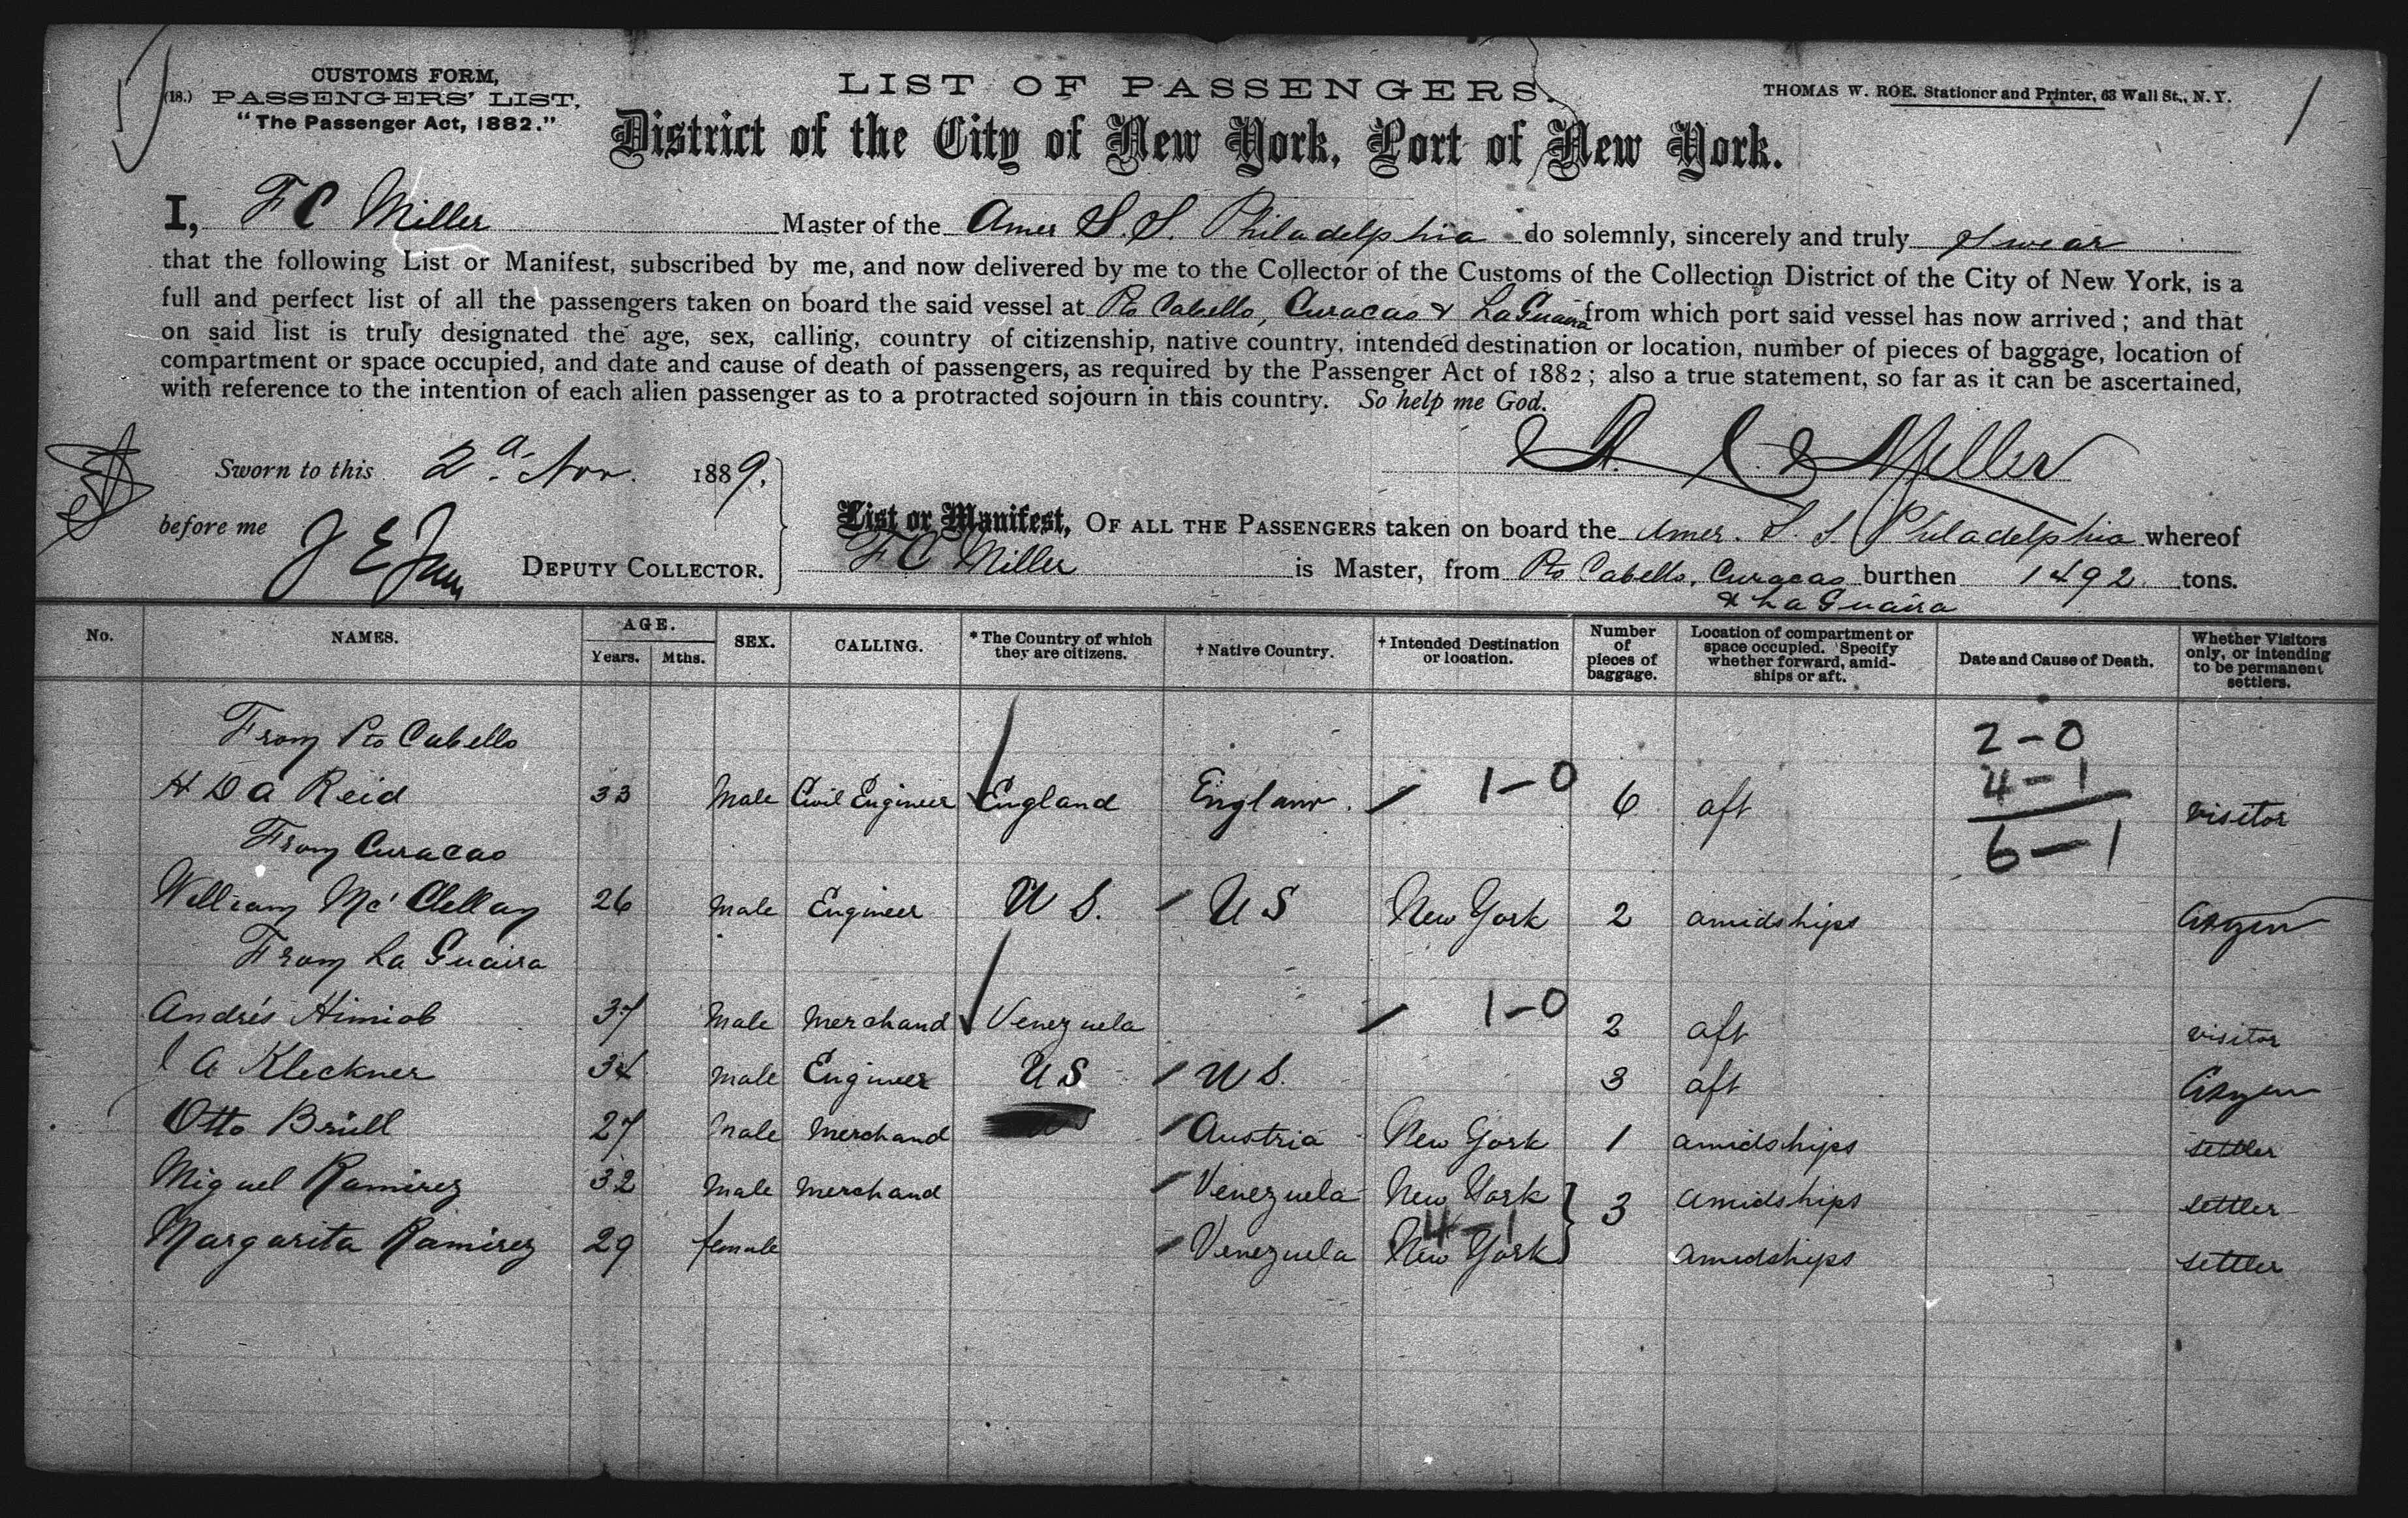 CUSTOMS FORM,
(18.) PASSENGERS' LIST,
"The Passenger Act, 1882."
LIST OF PASSENGERS.
THOMAS W. ROE. Stationer and Printer, 63 Wall St., N. Y.
1
District of the City of New York, Port of New York.
I, F C Miller Master of the Amer S. S. Philadelphia do solemnly, sincerely and truly swear
that the following List or Manifest, subscribed by me, and now delivered by me to the Collector of the Customs of the Collection District of the City of New York, is a
full and perfect list of all the passengers taken on board the said vessel at Pto Cabello, Curacao & La Guaira from which port said vessel has now arrived; and that
on said list is truly designated the age, sex, calling, country of citizenship, native country, intended destination or location, number of pieces of baggage, location of
compartment or space occupied, and date and cause of death of passengers, as required by the Passenger Act of 1882; also a true statement, so far as it can be ascertained,
with reference to the intention of each alien passenger as to a protracted sojourn in this country. So help me God.
Miller
Sworn to this 2d Nov. 1889.
before me J E
DEPUTY COLLECTOR.
List or Manifest, OF ALL THE PASSENGERS taken on board the Amer. S. S Philadelphia whereof
F C Miller is Master, from Pto Cabello, Curacao burthen 1492 tons.
& La Guaira
No. NAMES. AGE. Years. Mths. SEX. CALLING. * The Country of which they are citizens. † Native Country. † Intended Destination or location. Number of pieces of baggage. Location of compartment or space occupied. Specify whether forward, amidships or aft. Date and Cause of Death. Whether Visitors only, or intending to be permanent settlers.
From Pto Cabello 2-0
H D A Reid 33 Male Civil Engineer England England 1-0 6 aft 4-1 visitor
From Curacao 6-1
William Mc'Clellan 26 Male Engineer U S. U S New York 2 amidships
From La Guaira
Andrés Himiob 37 Male Merchand Venezuela 1-0 2 aft visitor
A Kleckner 34 Male Engineer U S U S. 3 aft
Otto Brüll 27 Male Merchand Austria New York 1 amidships settler
Miguel Ramirez 32 Male Merchand Venezuela New York 3 amidships settler
4-1
Margarita Ramirez 29 female Venezuela New York amidships settler